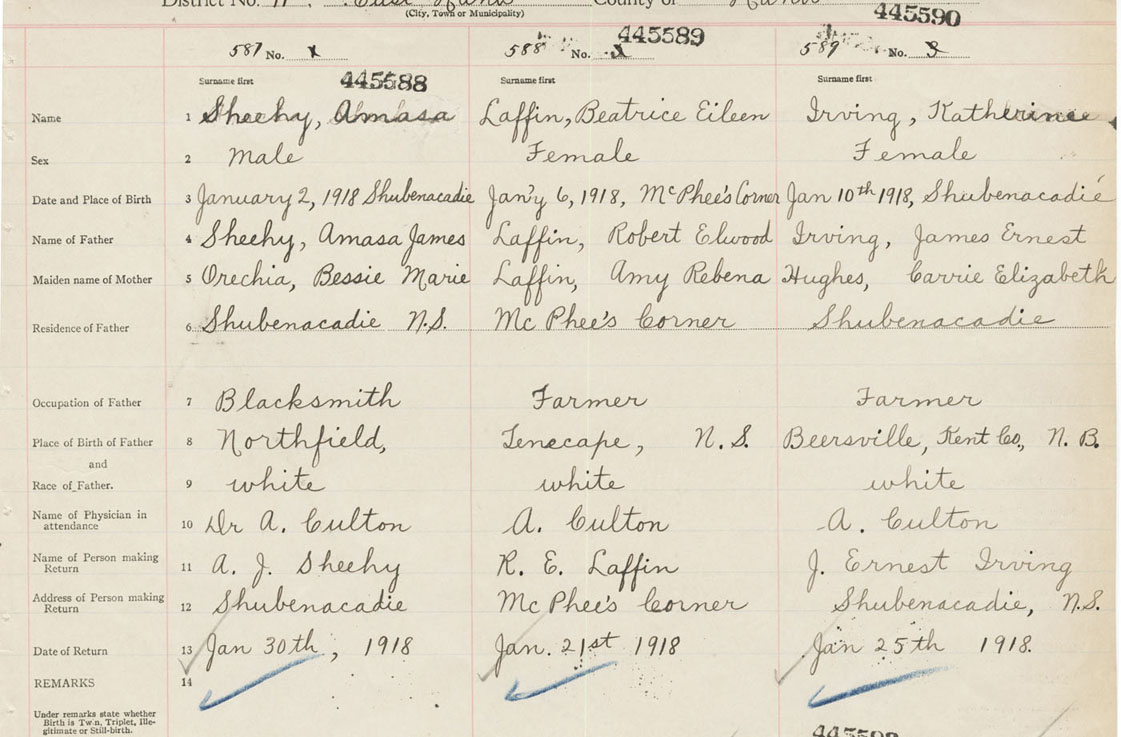 District No. 11, East Hants County of Hants
(City, Town or Municipality)
445590
587 No. 1 588 No. 2 445589 589 No. 3
Surname first 445588 Surname first Surname first
Name 1 Sheehy, Amasa Laffin, Beatrice Eileen Irving, Katherine
Sex 2 Male Female Female
Date and Place of Birth 3 January 2, 1918 Shubenacadie Jan'y 6, 1918, McPhee's Corner Jan 10th 1918, Shubenacadie
Name of Father 4 Sheehy, Amasa James Laffin, Robert Elwood Irving, James Ernest
Maiden name of Mother 5 Orechia, Bessie Marie Laffin, Amy Rebena Hughes, Carrie Elizabeth
Residence of Father 6 Shubenacadie N.S. Mc Phee's Corner Shubenacadie
Occupation of Father 7 Blacksmith Farmer Farmer
Place of Birth of Father 8 Northfield, Tenecape, N.S. Beersville, Kent Co., N.B.
and
Race of Father. 9 white white white
Name of Physician in
attendance 10 Dr A. Culton A. Culton A. Culton
Name of Person making
Return 11 A. J. Sheehy R. E. Laffin J. Ernest Irving
Address of Person making
Return 12 Shubenacadie Mc Phee's Corner Shubenacadie, N.S.
Date of Return 13 Jan 30th, 1918 Jan. 21st 1918 Jan 25th 1918.
REMARKS 14
Under remarks state whether
Birth is Twin, Triplet, Ille-
gitimate or Still-birth.